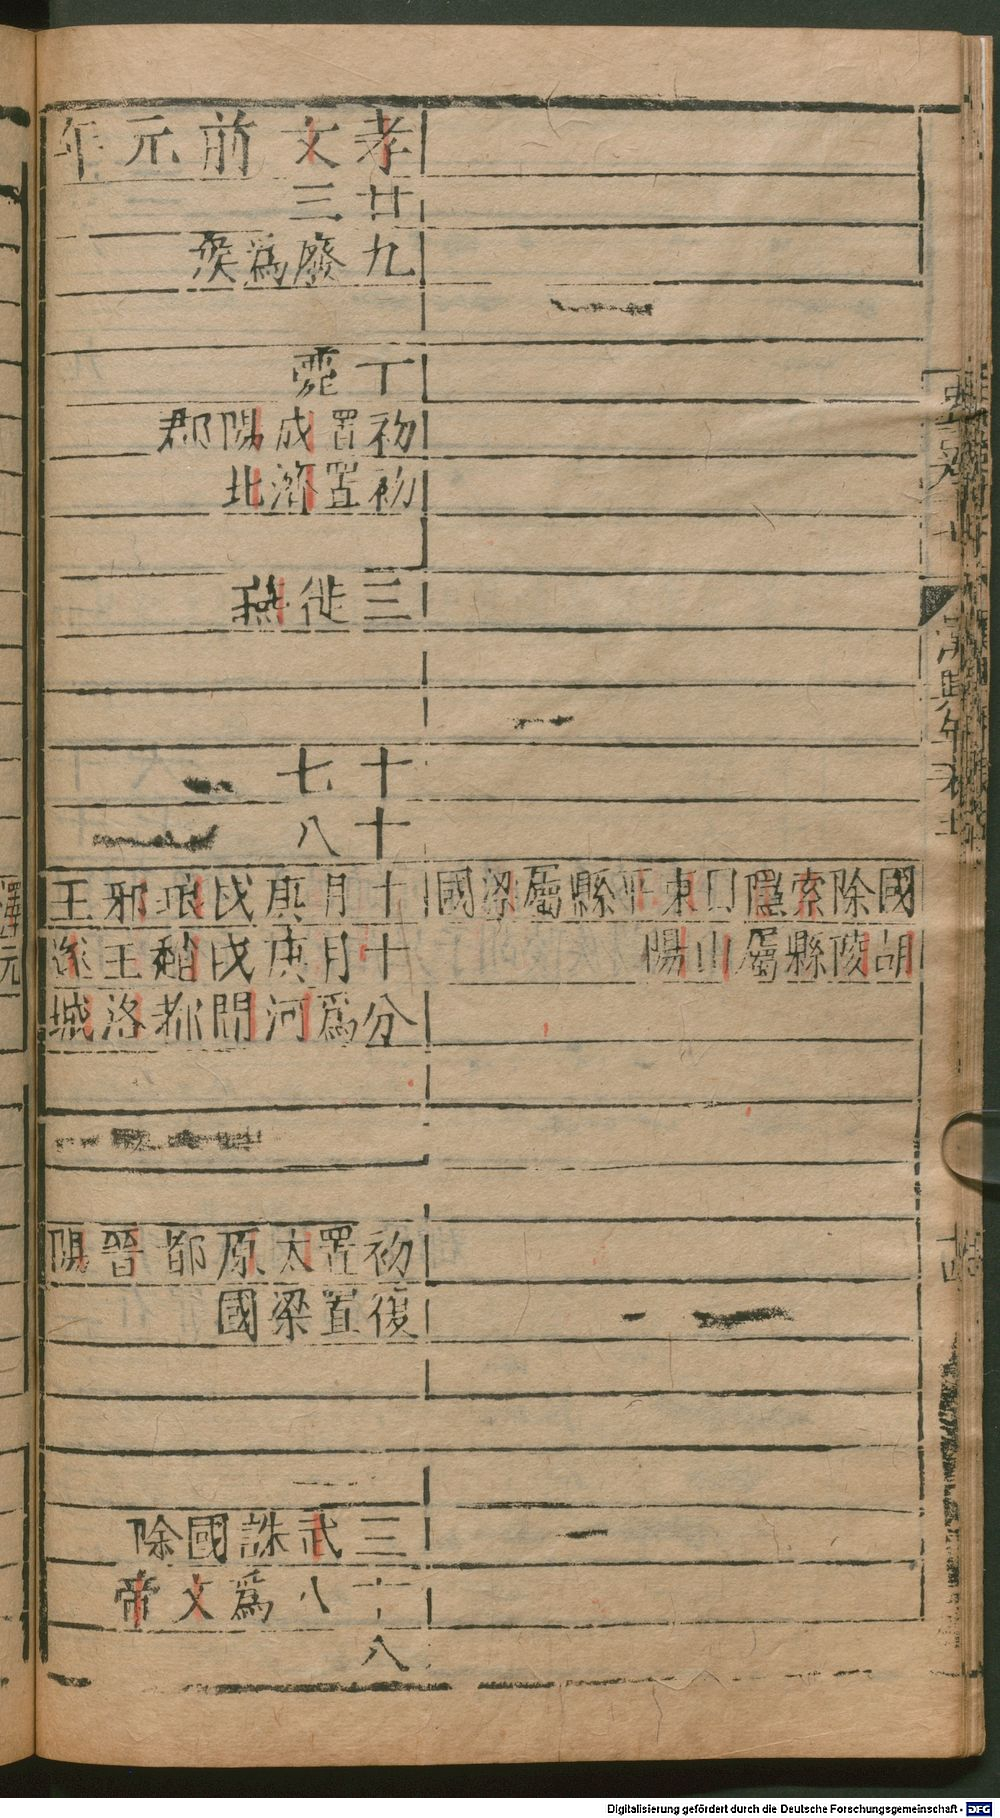 國除索隱曰東平縣屬梁國
胡陵縣屬山陽
孝文前元年
廿三
九廢爲侯
丁薨
初置成陽郡
初置濟北
三徙燕
十七
十八
十月庚戌琅邪王
十月庚戌
王
遂
分爲河間都洛城
初置太原都晉陽
復置梁國
三武誅國除
十八爲文帝
八
漢興年表
十四
Digitalisierung gefördert durch die Deutsche Forschungsgemeinschaft - DFG